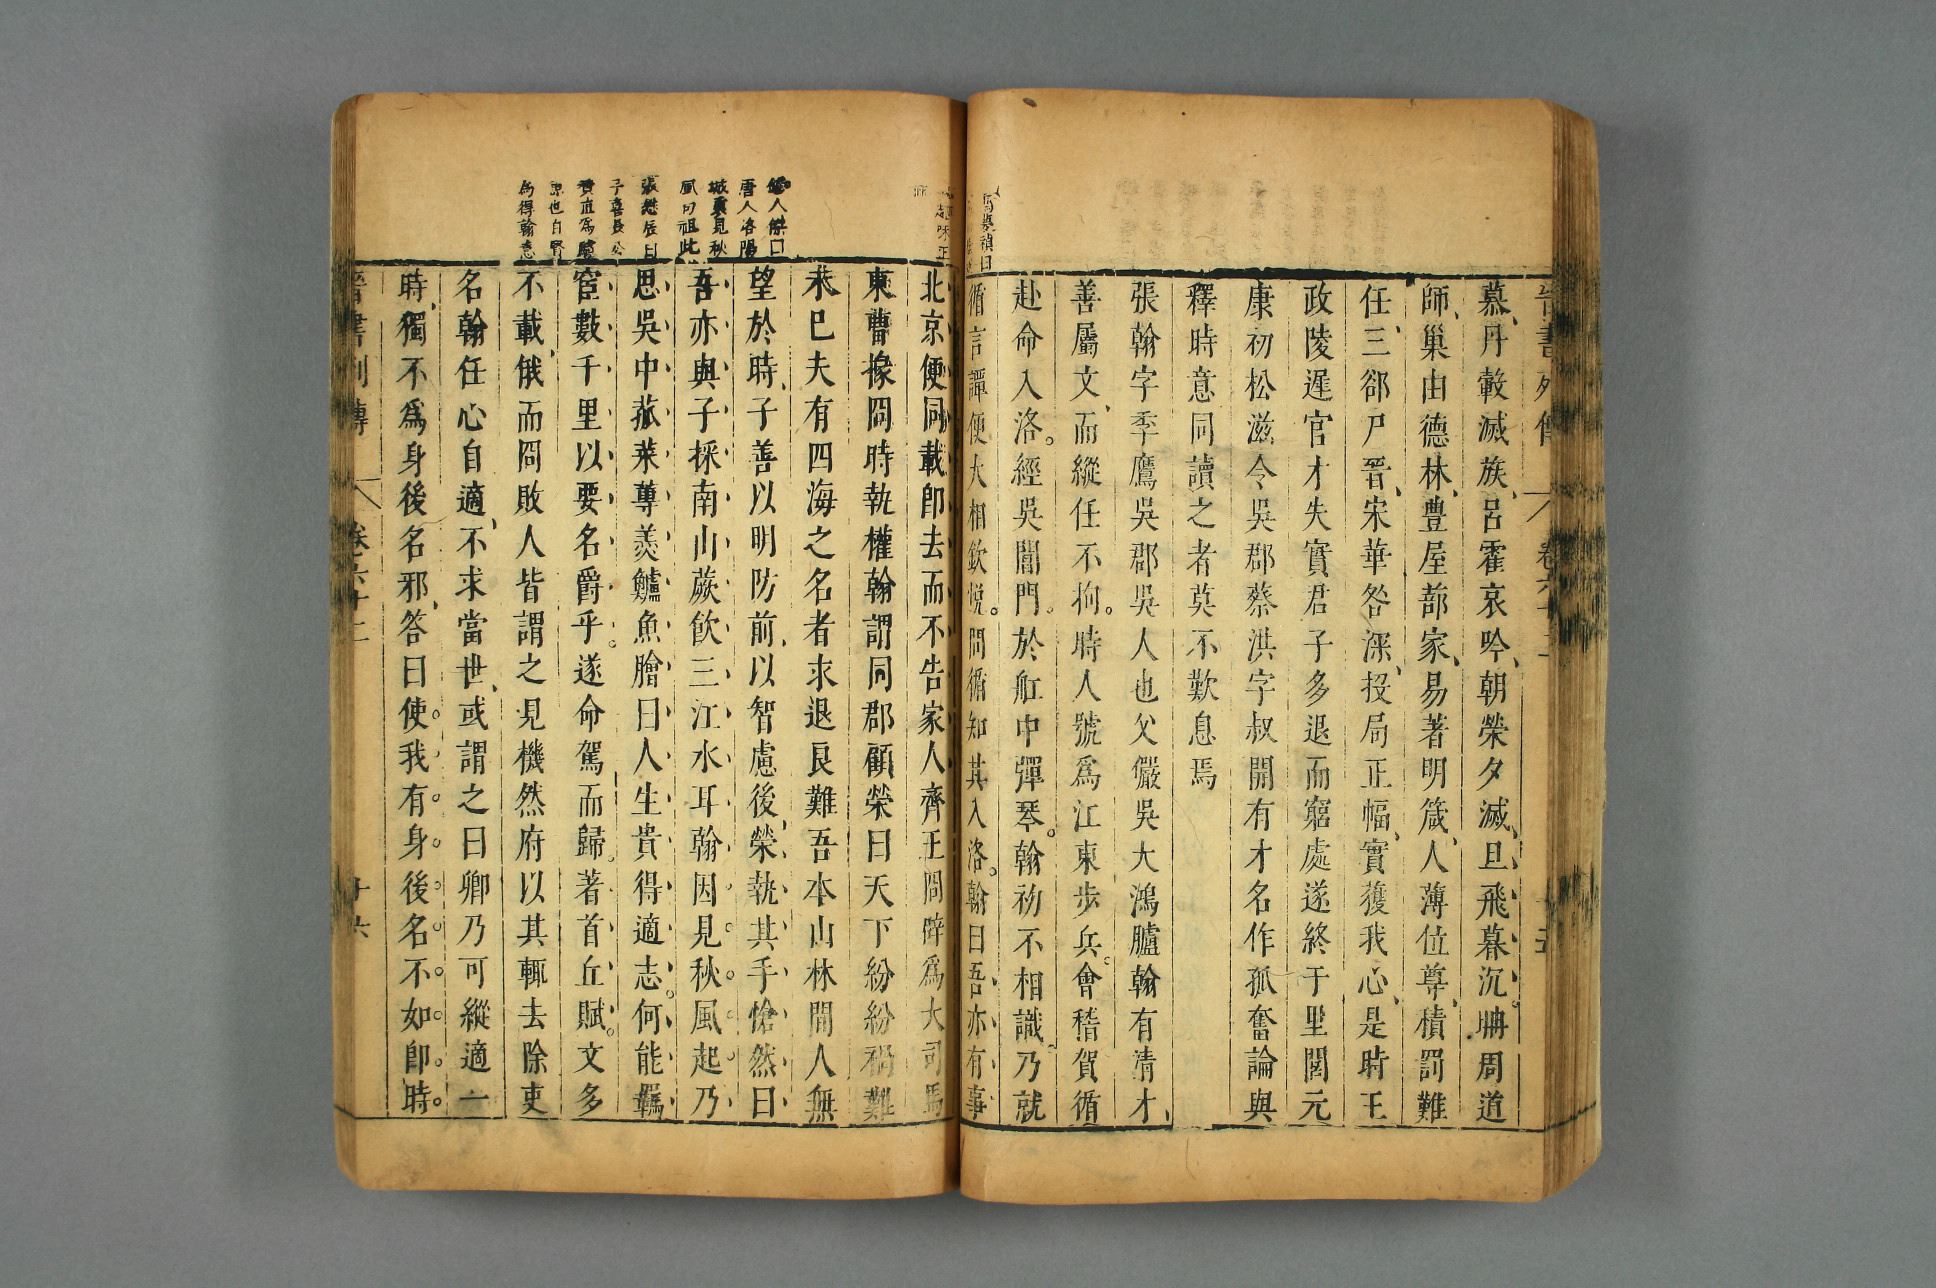 晉書列傳 卷六十二 十五
慕丹轂滅族呂霍哀吟朝榮夕滅旦飛暮沉聃周道
師巢由德林豊屋蔀家易著明箴人薄位尊積罰難
任三郤尸晉宋華咎深投局正幅實獲我心是時王
政陵遲官才失實君子多退而窮處遂終于里閭元
康初松滋令吳郡蔡洪字叔開有才名作孤奮論與
釋時意同讀之者莫不歎息焉
張翰字季鷹吳郡吳人也父儼吳大鴻臚翰有清才
善屬文而縱任不拘時人號爲江東步兵會稽賀循
赴命入洛經吳閶門於舡中彈琴翰初不相識乃就
循言譚便大相欽悅問循知其入洛翰曰吾亦有事
北京便同載卽去而不告家人齊王冏辟爲大司馬
東曹掾冏時執權翰謂同郡顧榮曰天下紛紛禍難
未巳夫有四海之名者求退良難吾本山林間人無
望於時子善以明防前以智慮後榮執其手愴然曰
吾亦與子採南山蕨飮三江水耳翰因見秋風起乃
思吳中菰菜蓴羨鱸魚膾曰人生貴得適志何能羈
宦數千里以要名爵乎遂命駕而歸著首丘賦文多
不載俄而冏敗人皆謂之見機然府以其輒去除吏
名翰任心自適不求當世或謂之曰卿乃可縱適一
時獨不爲身後名邪答曰使我有身後名不如卽時
晉書列傳 卷六十二 十六
唐人洛陽
城裏見秋
風句祖此
張懋辰曰
子喜長公
爲得翰意